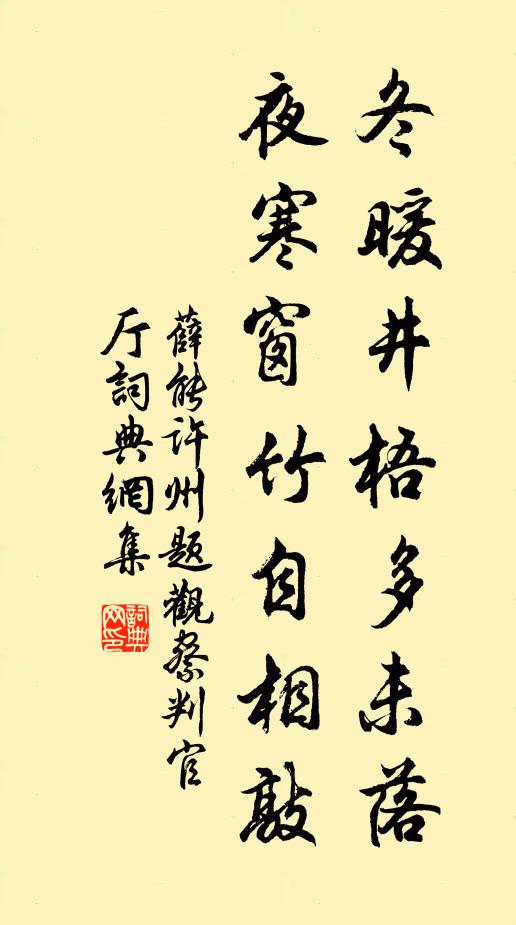 冬暖井梧多未落
夜寒窗竹自相敲
薛能许州题觀察判官
厅詞典網集
詞典网印